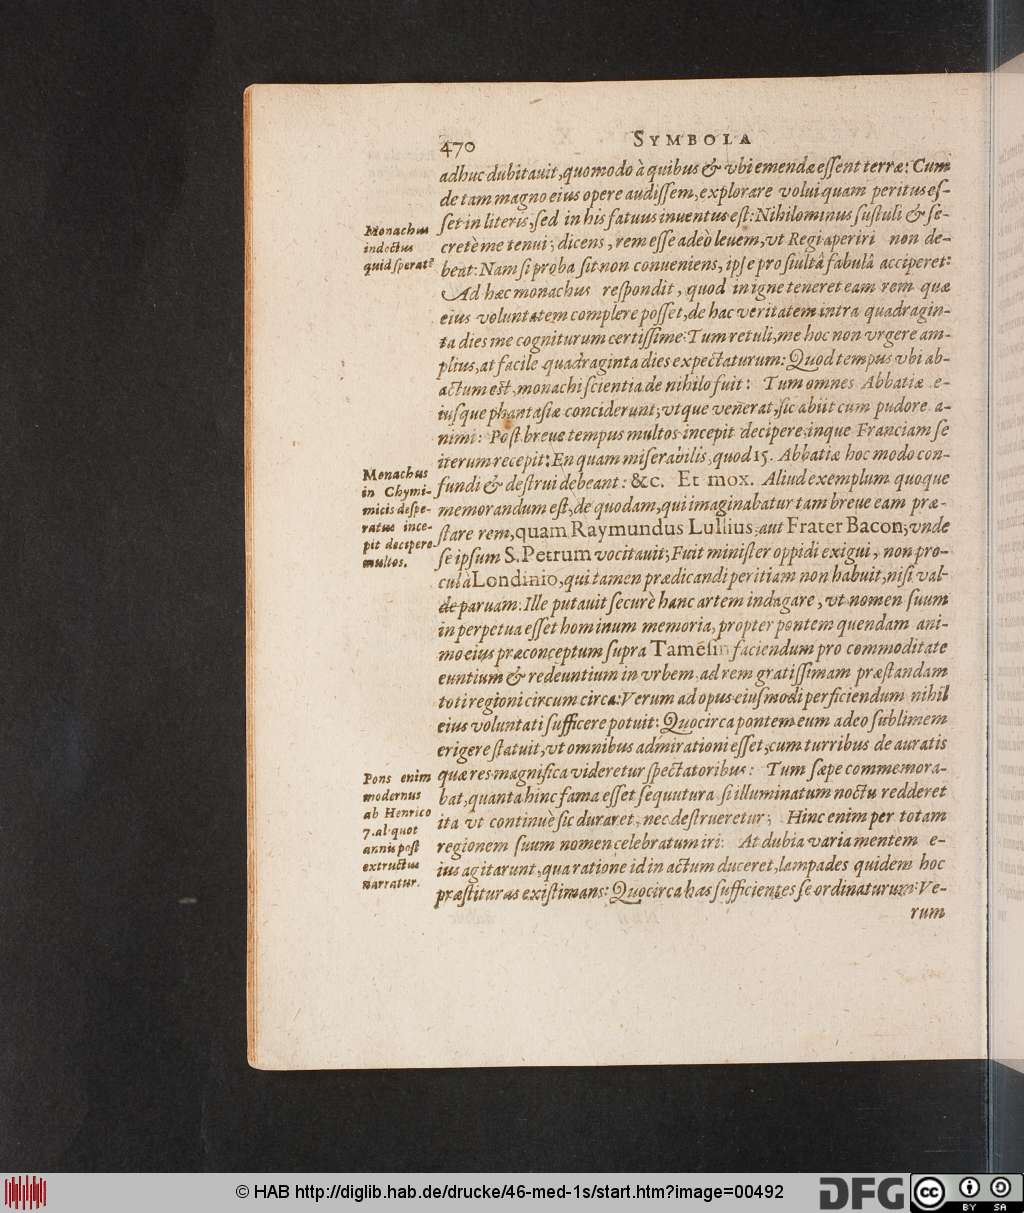 470 SYMBOLA
adhuc dubitauit, quomodo à quibus & vbi emendæ essent terræ: Cum
de tam magno eius opere audissem, explorare volui quam peritus es-
set in literis, sed in his fatuus inuentus est: Nihilominus sustuli & se-
cretè me tenui; dicens, rem esse adeò leuem, vt Regi aperiri non de-
beat: Nam si proba sit non conueniens, ipse pro siultâ fabulâ acciperet:
Ad hæc monachus respondit, quod in igne teneret eam rem quæ
eius voluntatem complere posset, de hac veritatem intra quadragin-
ta dies me cogniturum certissime: Tum retuli, me hoc non vrgere am-
plius, at facile quadraginta dies expectaturum: Quod tempus vbi ab-
actum est, monachi scientia de nihilo fuit: Tum omnes Abbatiæ e-
iusque phantasiæ conciderunt, vtque venerat, sic abiit cum pudore a-
nimi: Post breue tempus multos incepit decipere inque Franciam se
iterum recepit: En quam miserabilis, quod 15. Abbatiæ hoc modo con-
fundi & destrui debeant: &c. Et mox. Aliud exemplum quoque
memorandum est, de quodam, qui imaginabatur tam breue eam præ-
stare rem, quam Raymundus Lullius, aut Frater Bacon, vnde
se ipsum S. Petrum vocitauit; Fuit minister oppidi exigui, non pro-
cul à Londinio, qui tamen prædicandi peritiam non habuit, nisi val-
de paruam. Ille putauit securè hanc artem indagare, vt nomen suum
in perpetua esset hominum memoria, propter pontem quendam ani-
mo eius præconceptum supra Tamesin faciendum pro commoditate
euntium & redeuntium in vrbem, ad rem gratissimam præstandam
toti regioni circum circa: Verum ad opus eiusmodi perficiendum nihil
eius voluntati sufficere potuit: Quocirca pontem eum adeo sublimem
erigere statuit, vt omnibus admirationi esset, cum turribus de auratis
quæ res magnifica videretur spectatoribus: Tum sæpe commemora-
bat, quanta hinc fama esset sequutura si illuminatum noctu redderet
ita vt continuè sic duraret, nec destrueretur; Hinc enim per totam
regionem suum nomen celebratum iri: At dubia varia mentem e-
ius agitarunt, qua ratione id in actum duceret, lampades quidem hoc
præstituras existimans: Quocirca has sufficientes se ordinaturum: Ve-
rum
Monachus
indoctus
quid sperat?
Monachus
in Chymi-
micis despe-
ratus ince-
pit decipere
multos.
Pons enim
modernus
ab Henrico
7. aliquot
annis post
extructus
narratur.
© HAB http://diglib.hab.de/drucke/46-med-1s/start.htm?image=00492
DFG
cc
BY SA